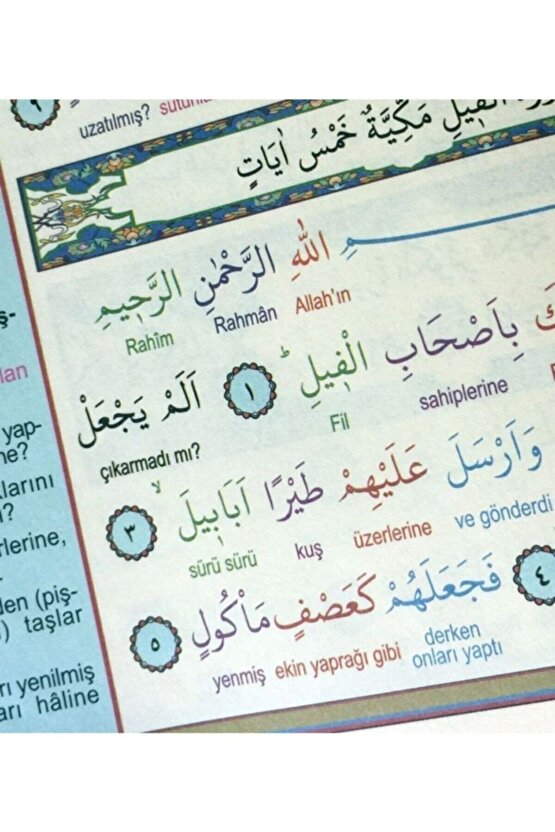 ٩
uzatılmış?
الْفِيلِ مَكِّيَّةٌ خَمْسُ اٰيَاتٍ
اللّٰهِ الرَّحْمٰنِ الرَّحِيمِ
Allah'ın Rahmân Rahîm
بِاَصْحَابِ الْفِيلِ ١ اَلَمْ يَجْعَلْ
sahiplerine Fil çıkarmadı mı?
وَاَرْسَلَ عَلَيْهِمْ طَيْرًا اَبَابِيلَ ٣
ve gönderdi üzerlerine kuş sürü sürü
٤ فَجَعَلَهُمْ كَعَصْفٍ مَأْكُولٍ ٥
derken onları yaptı ekin yaprağı gibi yenmiş
ş-
lan
yap-
ne?
klarını
ı?
rlerine,
den (piş-
taşlar
rı yenilmiş
arı hâline